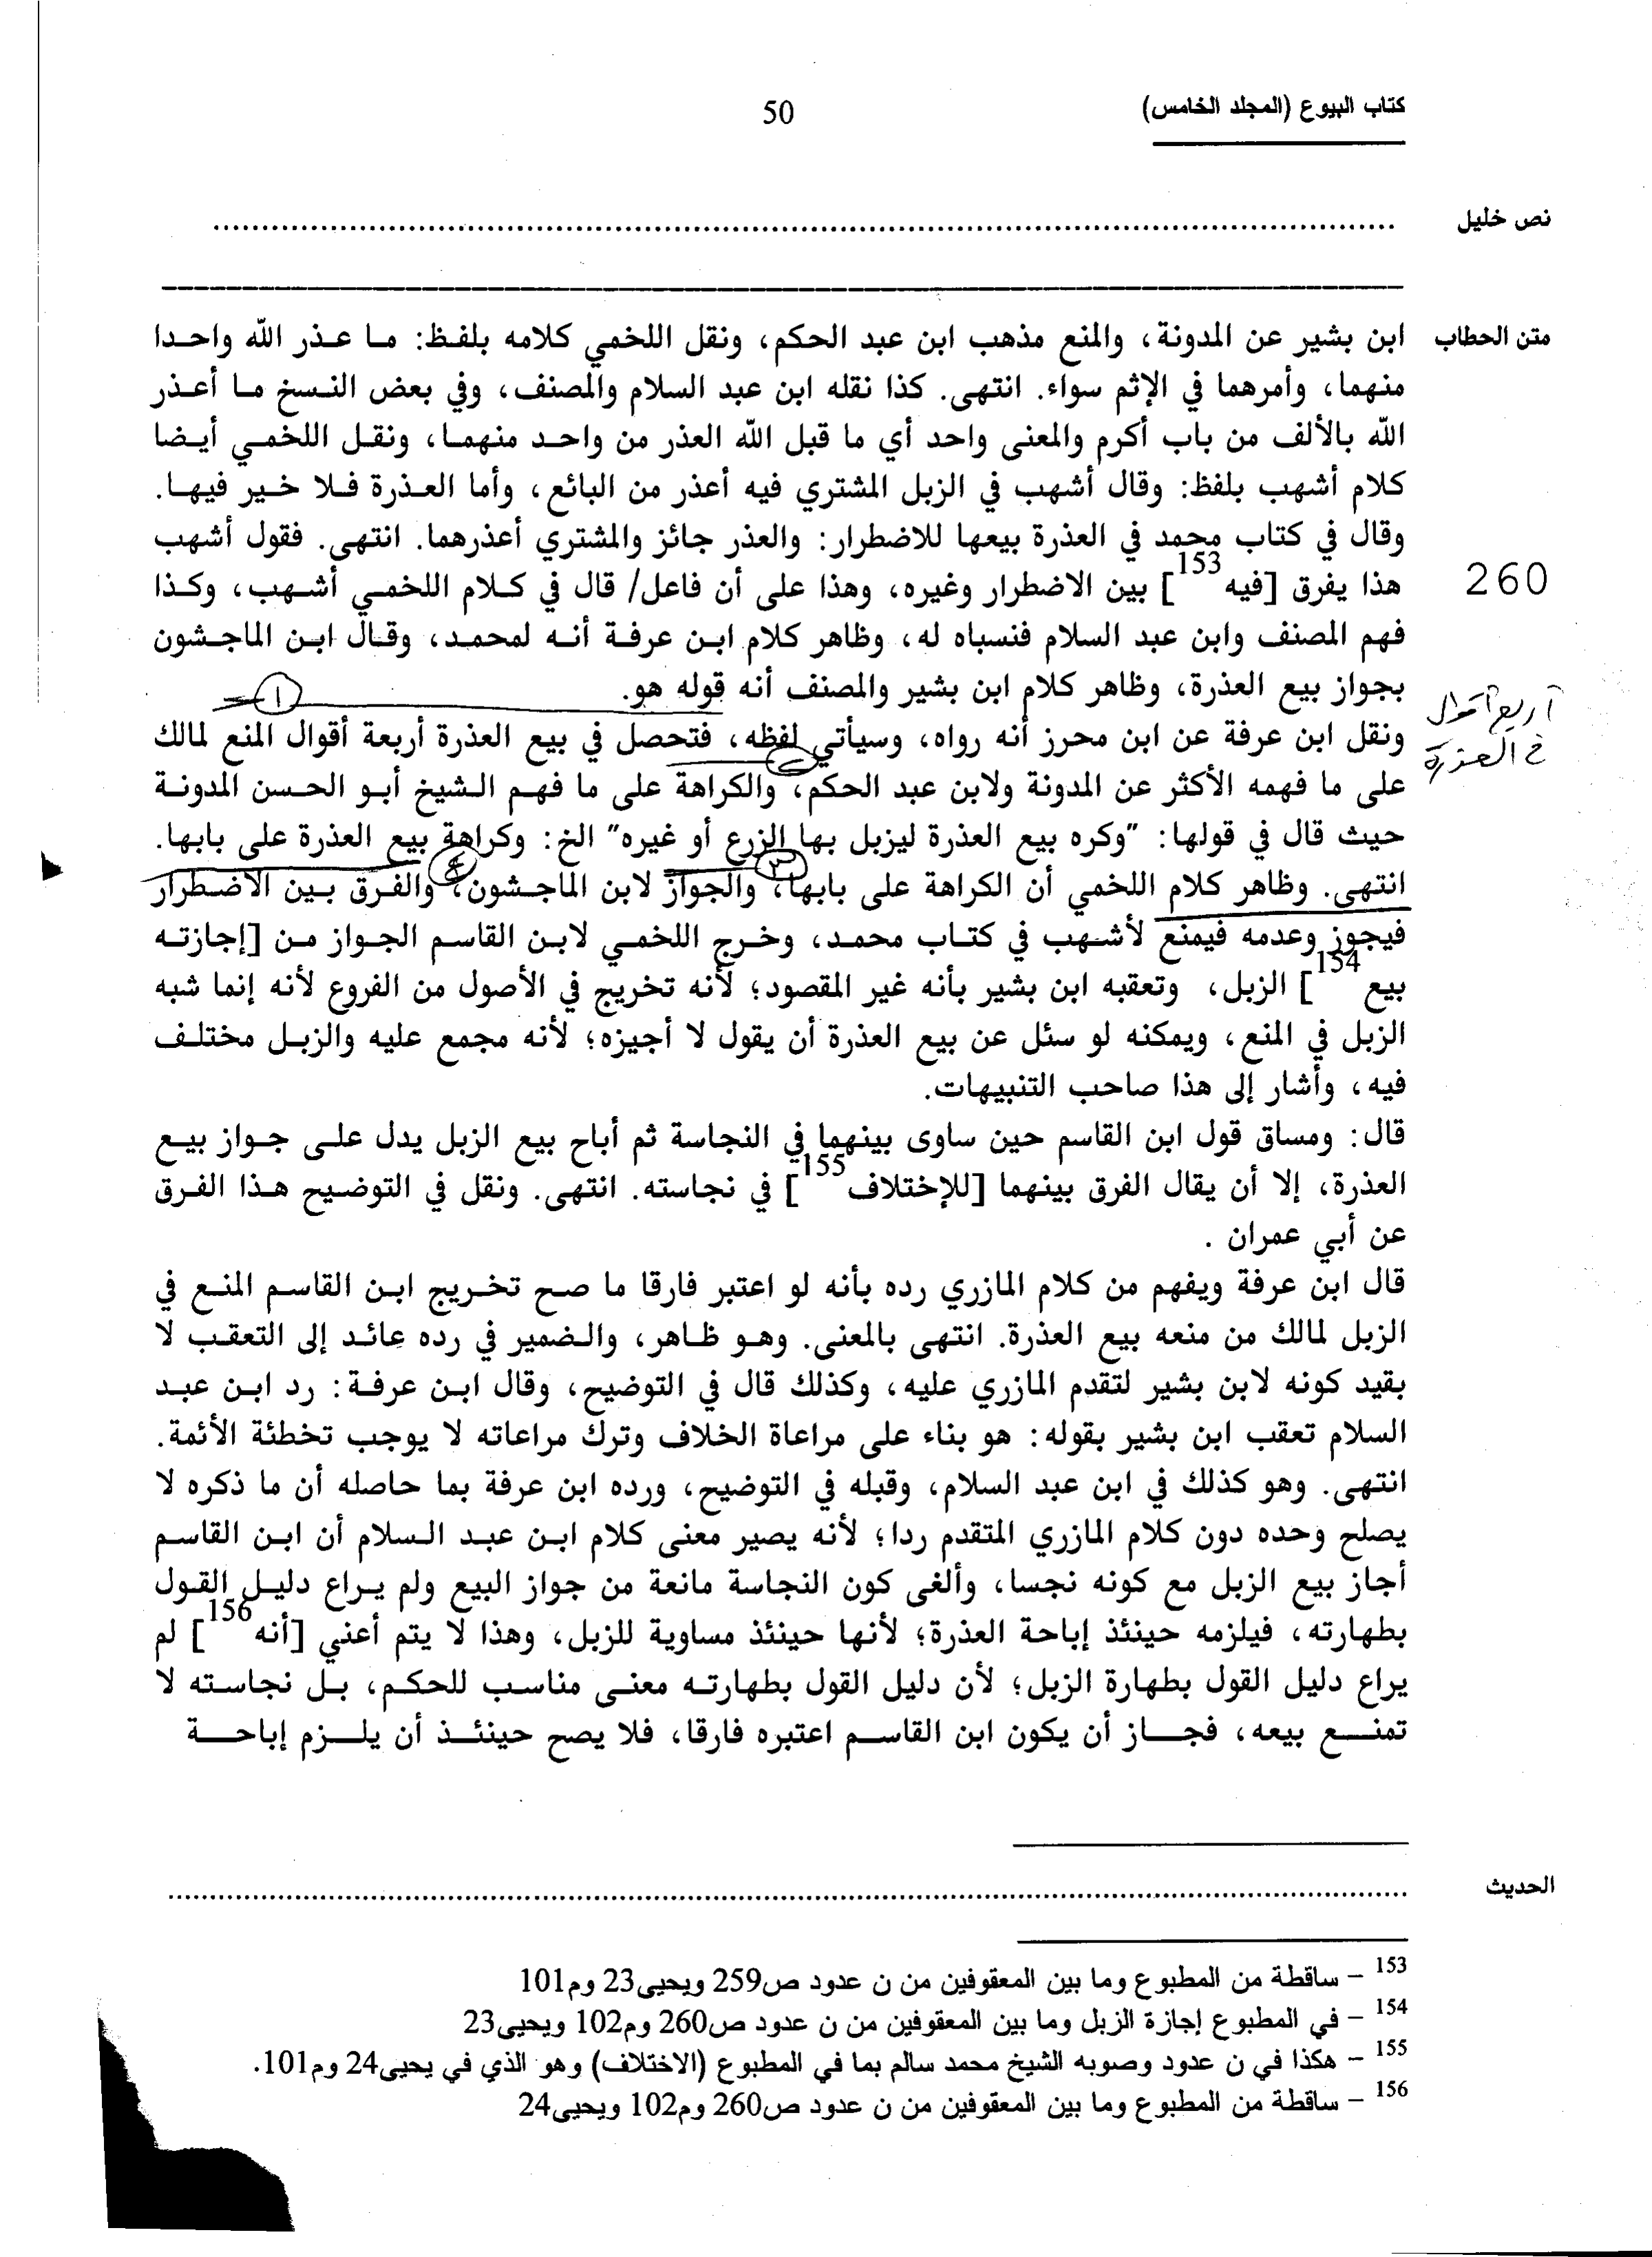 كتاب البيوع (المجلد الخامس)
50
نص خليل
متن الحطاب
ابن بشير عن المدونة، والمنع مذهب ابن عبد الحكم، ونقل اللخمي كلامه بلفظ: ما عذر الله واحدا
منهما، وأمرهما في الإثم سواء. انتهى. كذا نقله ابن عبد السلام والمصنف، وفي بعض النسخ ما أعذر
الله بالألف من باب أكرم والمعنى واحد أي ما قبل الله العذر من واحد منهما، ونقل اللخمي أيضا
كلام أشهب بلفظ: وقال أشهب في الزبل المشتري فيه أعذر من البائع، وأما العذرة فلا خير فيها.
وقال في كتاب محمد في العذرة بيعها للاضطرار: والعذر جائز والمشتري أعذرهما. انتهى. فقول أشهب
260
هذا يفرق [فيه153] بين الاضطرار وغيره، وهذا على أن فاعل/ قال في كلام اللخمي أشهب، وكذا
فهم المصنف وابن عبد السلام فنسباه له، وظاهر كلام ابن عرفة أنه لمحمد، وقال ابن الماجشون
بجواز بيع العذرة، وظاهر كلام ابن بشير والمصنف أنه قوله هو.
١
أربع أقوال
في العذرة
ونقل ابن عرفة عن ابن محرز أنه رواه، وسيأتي لفظه، فتحصل في بيع العذرة أربعة أقوال المنع لمالك
على ما فهمه الأكثر عن المدونة ولابن عبد الحكم، والكراهة على ما فهم الشيخ أبو الحسن المدونة
حيث قال في قولها: "وكره بيع العذرة ليزبل بها الزرع أو غيره" الخ: وكراهة بيع العذرة على بابها.
٣
٤
انتهى. وظاهر كلام اللخمي أن الكراهة على بابها، والجواز لابن الماجشون، والفرق بين الاضطرار
فيجوز وعدمه فيمنع لأشهب في كتاب محمد، وخرج اللخمي لابن القاسم الجواز من [إجازته
بيع154] الزبل، وتعقبه ابن بشير بأنه غير المقصود؛ لأنه تخريج في الأصول من الفروع لأنه إنما شبه
الزبل في المنع، ويمكنه لو سئل عن بيع العذرة أن يقول لا أجيزه؛ لأنه مجمع عليه والزبل مختلف
فيه، وأشار إلى هذا صاحب التنبيهات.
قال: ومساق قول ابن القاسم حين ساوى بينهما في النجاسة ثم أباح بيع الزبل يدل على جواز بيع
العذرة، إلا أن يقال الفرق بينهما [للإختلاف155] في نجاسته. انتهى. ونقل في التوضيح هذا الفرق
عن أبي عمران .
قال ابن عرفة ويفهم من كلام المازري رده بأنه لو اعتبر فارقا ما صح تخريج ابن القاسم المنع في
الزبل لمالك من منعه بيع العذرة. انتهى بالمعنى. وهو ظاهر، والضمير في رده عائد إلى التعقب لا
بقيد كونه لابن بشير لتقدم المازري عليه، وكذلك قال في التوضيح، وقال ابن عرفة: رد ابن عبد
السلام تعقب ابن بشير بقوله: هو بناء على مراعاة الخلاف وترك مراعاته لا يوجب تخطئة الأئمة.
انتهى. وهو كذلك في ابن عبد السلام، وقبله في التوضيح، ورده ابن عرفة بما حاصله أن ما ذكره لا
يصلح وحده دون كلام المازري المتقدم ردا؛ لأنه يصير معنى كلام ابن عبد السلام أن ابن القاسم
أجاز بيع الزبل مع كونه نجسا، وألغى كون النجاسة مانعة من جواز البيع ولم يراع دليل القول
بطهارته، فيلزمه حينئذ إباحة العذرة؛ لأنها حينئذ مساوية للزبل، وهذا لا يتم أعني [أنه156] لم
يراع دليل القول بطهارة الزبل؛ لأن دليل القول بطهارته معنى مناسب للحكم، بل نجاسته لا
تمنع بيعه، فجاز أن يكون ابن القاسم اعتبره فارقا، فلا يصح حينئذ أن يلزم إباحة
الحديث
153 – ساقطة من المطبوع وما بين المعقوفين من ن عدود ص259 ويحيى23 وم101
154 – في المطبوع إجازة الزبل وما بين المعقوفين من ن عدود ص260 وم102 ويحيى23
155 – هكذا في ن عدود وصوبه الشيخ محمد سالم بما في المطبوع (الاختلاف) وهو الذي في يحيى24 وم101.
156 – ساقطة من المطبوع وما بين المعقوفين من ن عدود ص260 وم102 ويحيى24